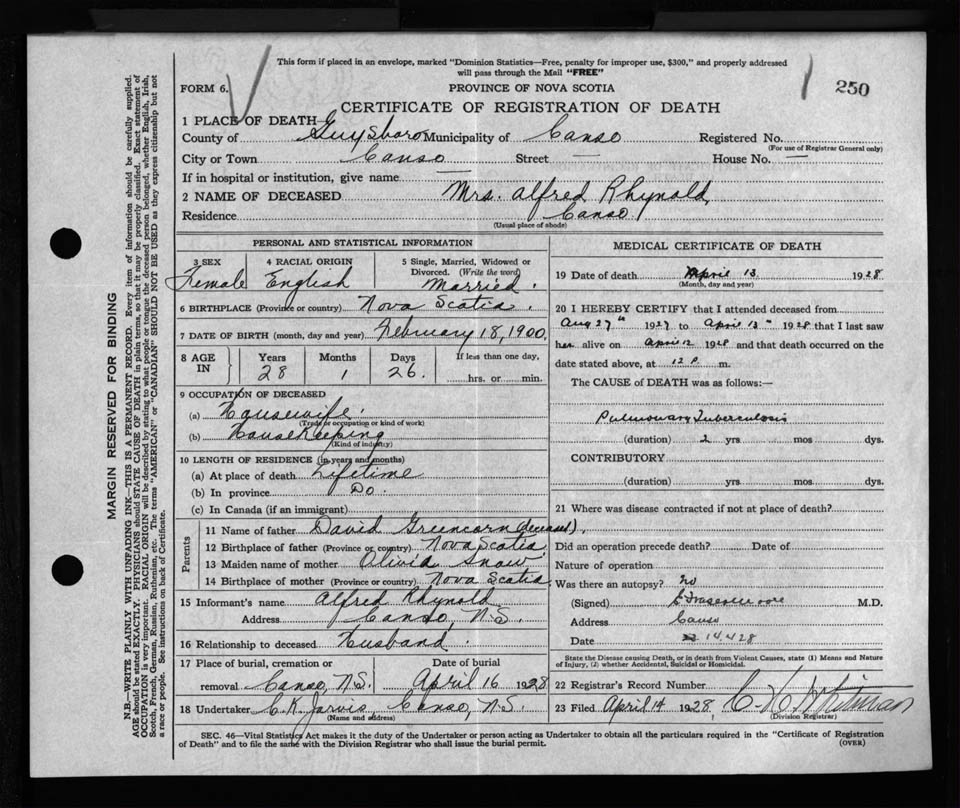 This form if placed in an envelope, marked "Dominion Statistics—Free, penalty for improper use, $300," and properly addressed
will pass through the Mail "FREE"
250
FORM 6.
PROVINCE OF NOVA SCOTIA
CERTIFICATE OF REGISTRATION OF DEATH
1 PLACE OF DEATH—
County of Guysboro Municipality of Canso Registered No.
(For use of Registrar General only)
City or Town Canso Street — House No. —
If in hospital or institution, give name —
2 NAME OF DECEASED Mrs. Alfred Rhynold,
Residence Canso
(Usual place of abode)
PERSONAL AND STATISTICAL INFORMATION
3 SEX 4 RACIAL ORIGIN 5 Single, Married, Widowed or
Divorced. (Write the word)
Female English Married.
6 BIRTHPLACE (Province or country) Nova Scotia.
7 DATE OF BIRTH (month, day and year) February 18, 1900.
8 AGE IN Years Months Days If less than one day,
28 1 26. hrs. or min.
9 OCCUPATION OF DECEASED
(a) Housewife.
(Trade or occupation or kind of work)
(b) Housekeeping
(Kind of industry)
10 LENGTH OF RESIDENCE (in years and months)
(a) At place of death Lifetime
(b) In province Do.
(c) In Canada (if an immigrant)
Parents
11 Name of father David Greencorn (deceased).
12 Birthplace of father (Province or country) Nova Scotia.
13 Maiden name of mother Olivia Snow
14 Birthplace of mother (Province or country) Nova Scotia.
15 Informant's name Alfred Rhynold
Address Canso, N.S.
16 Relationship to deceased Husband.
17 Place of burial, cremation or Date of burial
removal Canso, N.S. April 16 1928
18 Undertaker C. K. Jarvis, Canso, N.S.
(Name and address)
MEDICAL CERTIFICATE OF DEATH
19 Date of death April 13 1928
(Month, day and year)
20 I HEREBY CERTIFY that I attended deceased from
Aug 27" 1927 to April 13" 1928 that I last saw
her alive on April 12 1928 and that death occurred on the
date stated above, at 12 P. m.
The CAUSE of DEATH was as follows:—
Pulmonary Tuberculosis
(duration) 2 yrs. mos. dys.
CONTRIBUTORY
(duration) yrs. mos. dys.
21 Where was disease contracted if not at place of death?
Did an operation precede death? Date of
Nature of operation
Was there an autopsy? no
(Signed) M.D.
Address Canso
Date 14 4 28
State the Disease causing Death, or in death from Violent Causes, state (1) Means and Nature
of Injury, (2) whether Accidental, Suicidal or Homicidal.
22 Registrar's Record Number
23 Filed April 14 1928, C. H. Whitman
(Division Registrar)
SEC. 46—Vital Statistics Act makes it the duty of the Undertaker or person acting as Undertaker to obtain all the particulars required in the "Certificate of Registration
of Death" and to file the same with the Division Registrar who shall issue the burial permit.
(OVER)
MARGIN RESERVED FOR BINDING
N.B.—WRITE PLAINLY WITH UNFADING INK—THIS IS A PERMANENT RECORD. Every item of information should be carefully supplied.
AGE should be stated EXACTLY. PHYSICIANS should STATE CAUSE OF DEATH in plain terms, so that it may be properly classified. Exact statement of
OCCUPATION is very important. RACIAL ORIGIN will be described by stating to what people or tongue the deceased person belonged, whether English, Irish,
Scotch, French, German, Russian, Ruthenian, etc. The terms "AMERICAN" or "CANADIAN" SHOULD NOT BE USED as they express citizenship but not
a race or people. See instructions on back of Certificate.